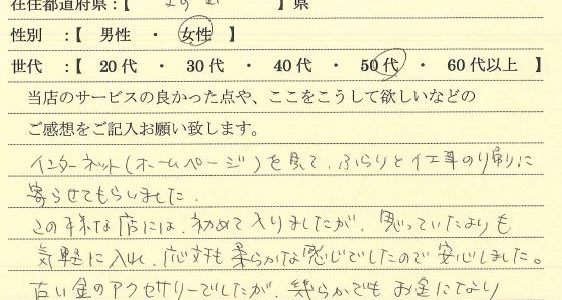 在住都道府県：【 】県
性別 ：【 男性 ・ 女性 】
世代 ：【 20代 ・ 30代 ・ 40代 ・ 50代 ・ 60代以上 】
当店のサービスの良かった点や、ここをこうして欲しいなどの
ご感想をご記入お願い致します。
インターネット(ホームページ)を見て、ふらりと仕事の帰りに
寄らせてもらいました。
この様な店には、初めて入りましたが、思っていたよりも
気軽に入れ、応対も柔らかな感じでしたので安心しました。
古い金のアクセサリーでしたが、幾らかでもお金になり